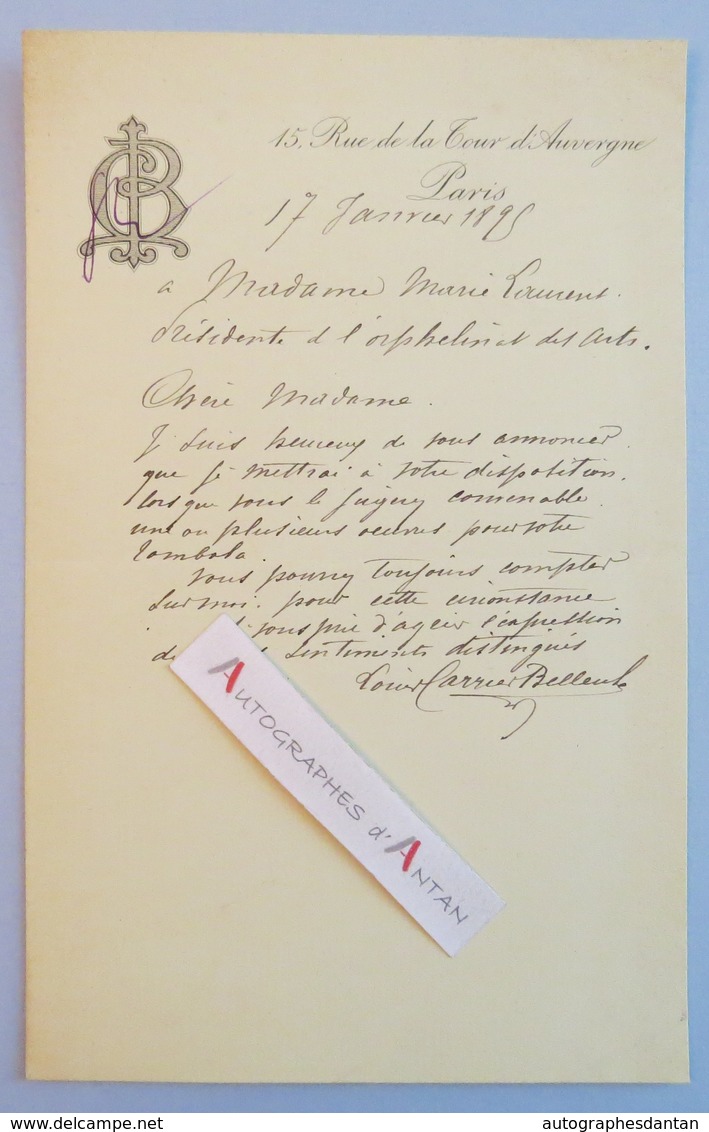 15, Rue de la Tour d'Auvergne
Paris
CB
17 Janvier 1895
a Madame Marie Laurent.
Présidente de l'orphelinat des Arts.
Chère Madame.
Je suis heureux de vous annoncer
que je mettrai à votre disposition.
lorsque vous le jugerez convenable.
une ou plusieurs oeuvres pour votre
Tombola.
Vous pouvez toujours compter
sur moi. pour cette circonstance
vous prie d'agréer l'expression
sentiments distingués
Louis Carrier Belleuse
AUTOGRAPHES d'ANTAN
www.delcampe.net
autographesdantan